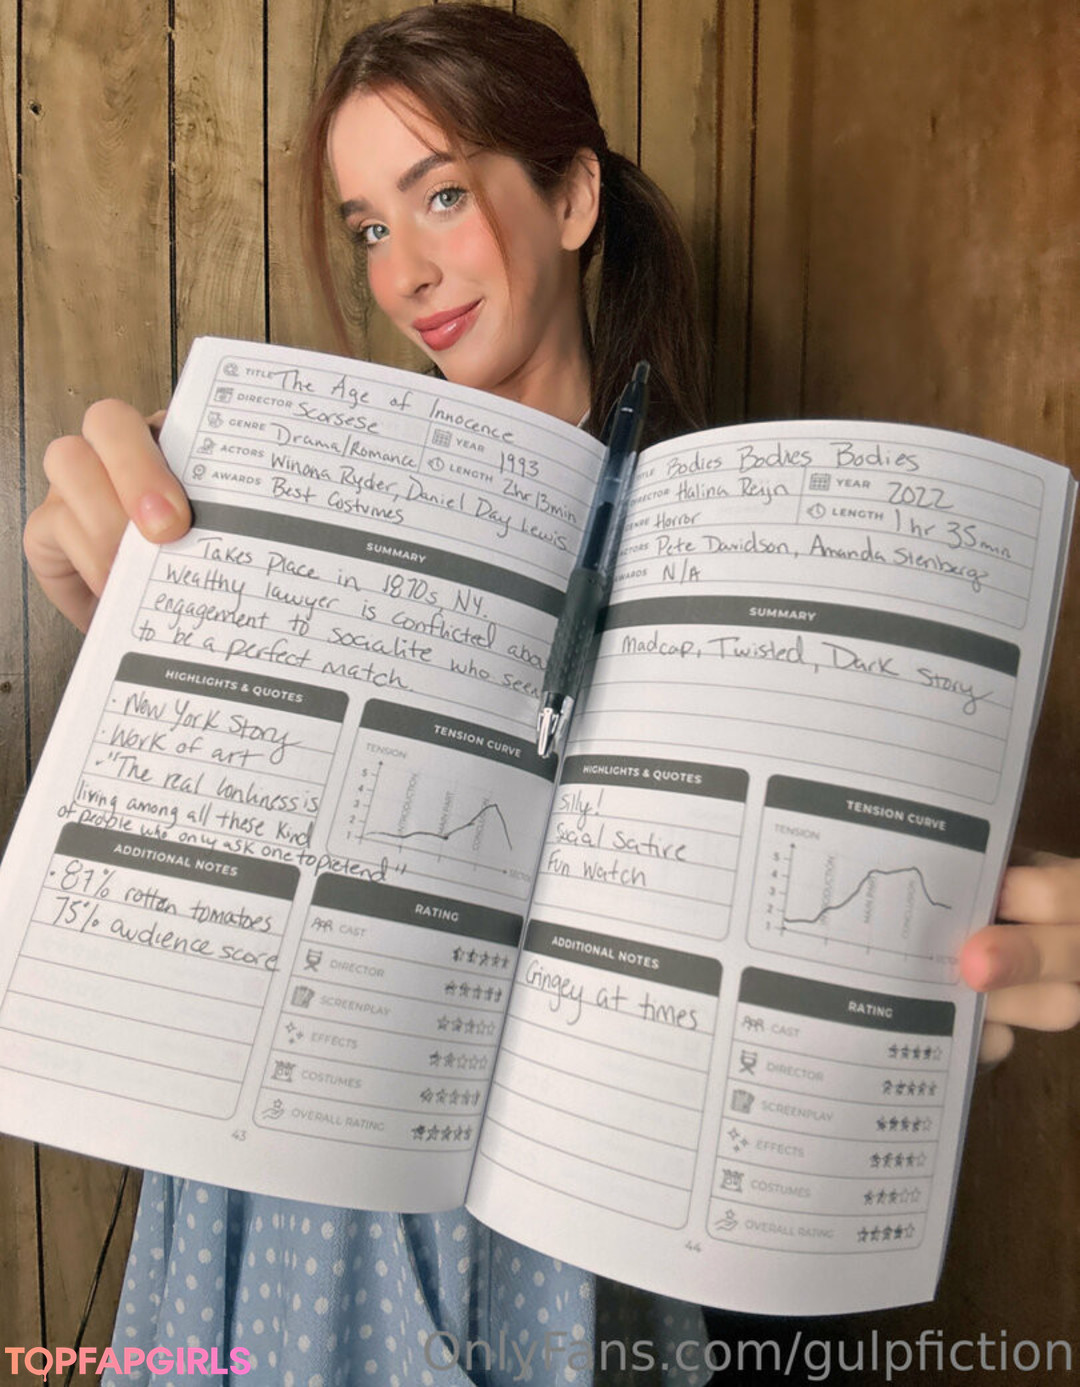 TITLE The Age of Innocence
DIRECTOR Scorsese
YEAR 1993
GENRE Drama/Romance
LENGTH 2hr 13min
ACTORS Winona Ryder, Daniel Day Lewis
AWARDS Best Costumes
SUMMARY
Takes Place in 1870s, NY.
Wealthy lawyer is conflicted abou
engagement to socialite who seem
to be a perfect match.
HIGHLIGHTS & QUOTES
· New York Story
· Work of art
· "The real lonliness is
living among all these kind
of people who only ask one to pretend"
TENSION CURVE
TENSION
5
4
3
2
1
INTRODUCTION
MAIN PART
CONCLUSION
ADDITIONAL NOTES
· 87% rotten tomatoes
75% audience score
RATING
CAST
DIRECTOR
SCREENPLAY
EFFECTS
COSTUMES
OVERALL RATING
43
Bodies Bodies Bodies
DIRECTOR Halina Reijn
YEAR 2022
Horror
LENGTH 1 hr 35 min
Pete Davidson, Amanda Stenberg
AWARDS N/A
SUMMARY
Madcap, Twisted, Dark Story
HIGHLIGHTS & QUOTES
Silly!
Social Satire
Fun Watch
TENSION CURVE
TENSION
5
4
3
2
1
INTRODUCTION
MAIN PART
CONCLUSION
ADDITIONAL NOTES
Cringey at times
RATING
CAST
DIRECTOR
SCREENPLAY
EFFECTS
COSTUMES
OVERALL RATING
44
TOPFAPGIRLS
OnlyFans.com/gulpfiction